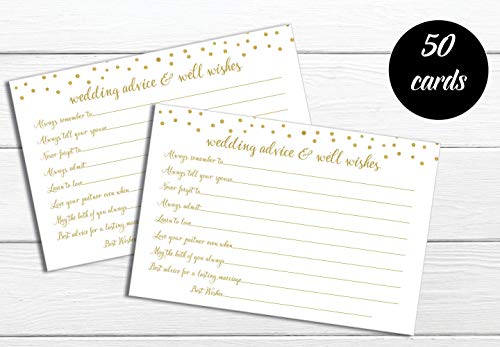 50
cards
wedding advice & well wishes
Always remember to
Always tell your spouse
Never forget to
Always admit
Learn to love
Love your partner even when
May the both of you always
Best advice for a lasting marriage
Best Wishes
wedding advice & well wishes
Always remember to
Always tell your spouse
Never forget to
Always admit
Learn to love
Love your partner even when
May the both of you always
Best advice for a lasting marriage
Best Wishes